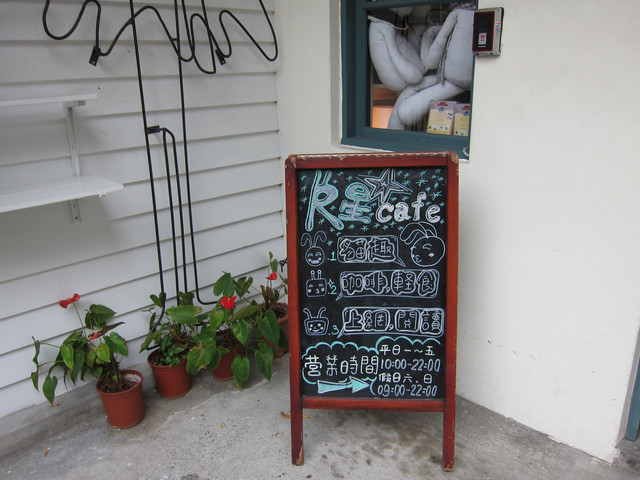 R星 cafe
1. 貓趣
2. 咖啡,輕食
3. 上網,閱讀
營業時間
平日一~五
10:00-22:00
假日六、日
09:00-22:00